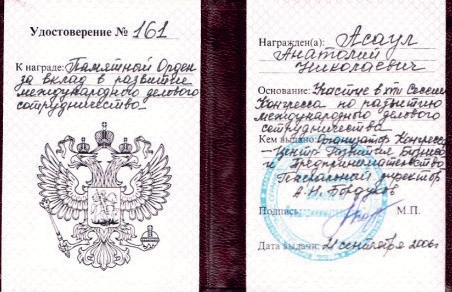 Удостоверение № 161
К награде: Памятный Орден
за вклад в развитие
международного делового
сотрудничества
Награжден(а): Асаул
Анатолий
Николаевич
Основание: Участие в XVII Сессии
Конгресса по развитию
международного делового
сотрудничества
Кем выдано: Организатор Конгресса
– Центр развития бизнеса
и предпринимательства
директор
А.Н.
Подпись: М.П.
Дата выдачи: 21 сентября 2006г